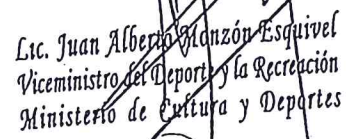 Lic. Juan Alberto Monzón Esquivel
Viceministro del Deporte y la Recreación
Ministerio de Cultura y Deportes